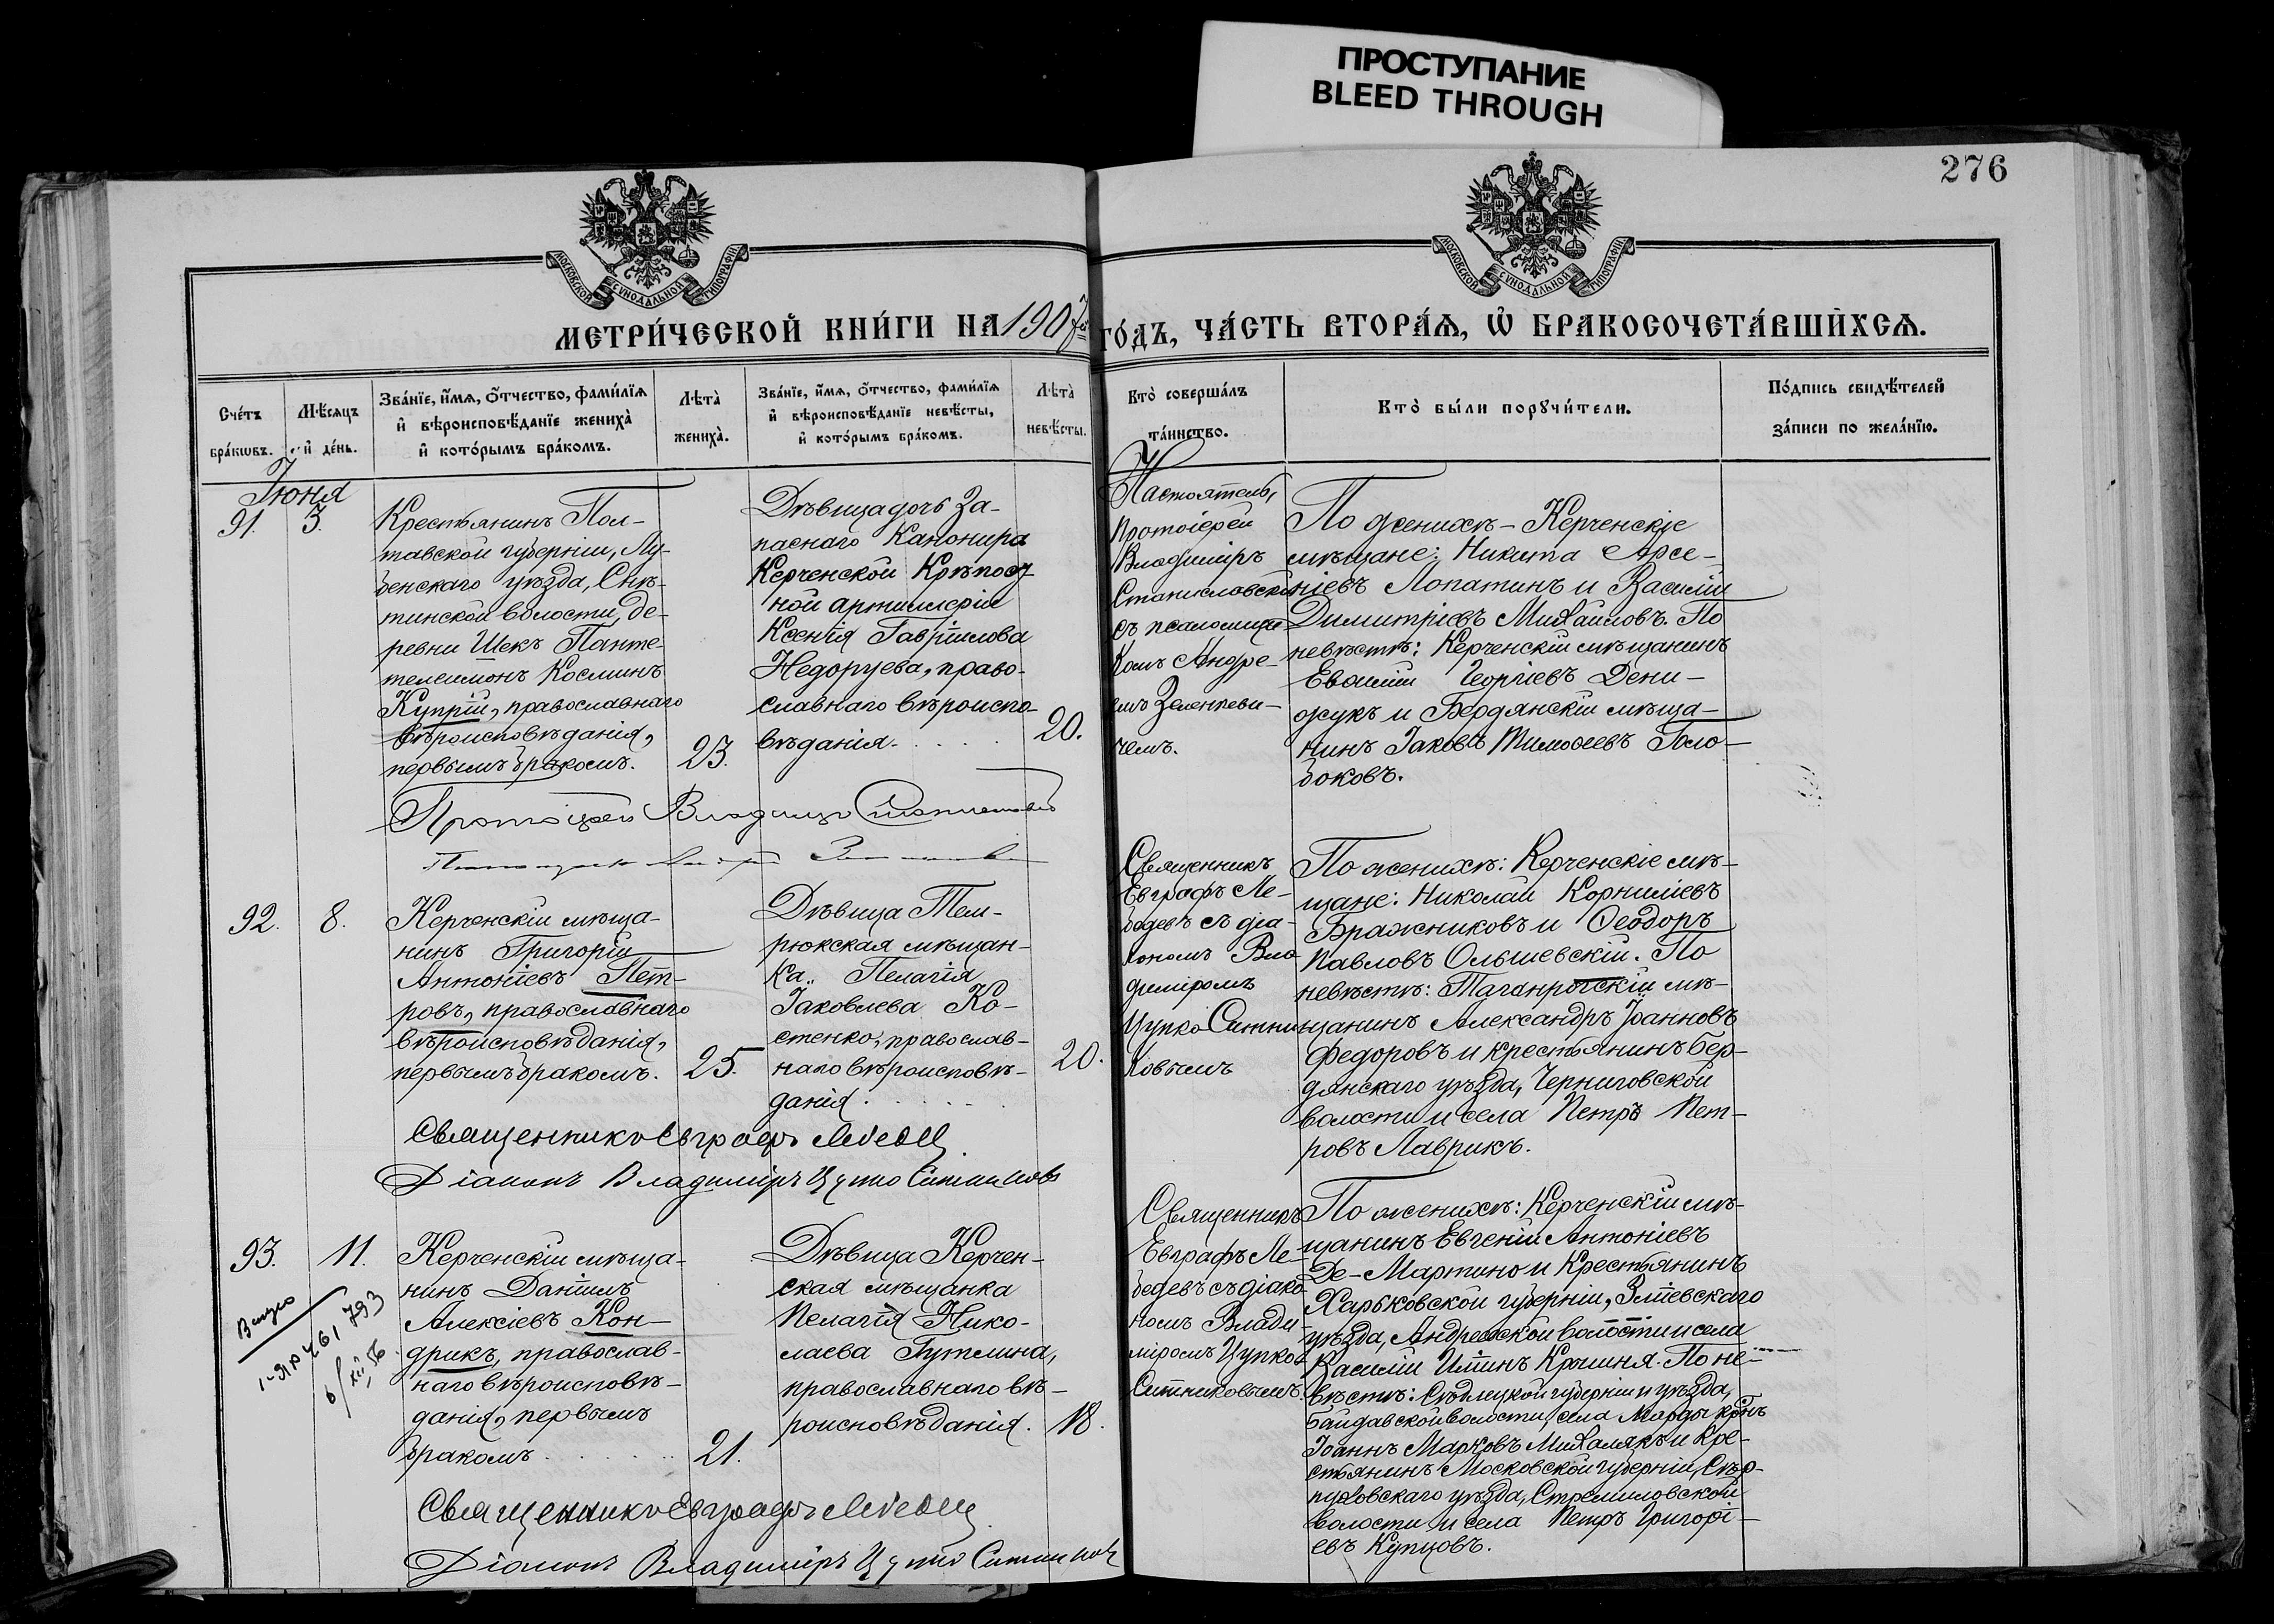 ПРОСТУПАНИЕ
BLEED THROUGH
276
МОСКОВСКОЙ СѴНОДАЛЬНОЙ ТИПОГРАФІИ
МОСКОВСКОЙ СѴНОДАЛЬНОЙ ТИПОГРАФІИ
МЕТРИ́ЧЕСКОЙ КНИ́ГИ НА 1907й ГО́ДЪ, ЧА́СТЬ ВТОРА́Ѧ, Ѡ҆ БРАКОСОЧЕТА́ВШИХСѦ.
Сче́тъ
бра́кѡвъ.
Мѣ́сяцъ
и҆ де́нь.
Зва́нїе, и҆́мѧ, ѻ҆́тчество, фами́лїѧ
и҆ вѣроисповѣ́данїе жениха̀
и҆ кото́рымъ бра́комъ.
Лѣ́та̀
жениха̀.
Зва́нїе, и҆́мѧ, ѻ҆́тчество, фами́лїѧ
и҆ вѣроисповѣ́данїе невѣ́сты,
и҆ кото́рымъ бра́комъ.
Лѣ́та̀
невѣ́сты.
Кто̀ соверша́лъ
та́инство.
Кто̀ бы́ли порꙋчи́тели.
По́дпись свидѣ́телей
за́писи по жела́нїю.
Іюня
91.
3.
Крестьянинъ Пол-
тавской губерніи, Лу-
бенскаго уѣзда, Снѣ-
тинской волости, де-
ревни Шекъ Панте-
телеимонъ Косминъ
Куприй, православнаго
вѣроисповѣданія,
первымъ бракомъ.
23.
Дѣвица дочь За-
паснаго Канонира
Керченской Крѣпост-
ной артиллеріи
Ксенія Гавріилова
Недоруева, право-
славнаго вѣроиспо-
вѣданія.
20.
Настоятель,
Протоіерей
Владиміръ
Станиславскій
съ псаломщи-
комъ Андре-
емъ Зеленкеви-
чемъ.
По женихѣ - Керченскіе
мѣщане: Никита Арсе-
ніевъ Лопатинъ и Василій
Димитріевъ Михайловъ. По
невѣстѣ: Керченскій мѣщанинъ
Евѳимій Георгіевъ Дени-
жукъ и Бердянскій мѣща-
нинъ Іаковъ Тимоѳеевъ Голо-
боковъ.
Протоіерей Владиміръ Станиславскій
92.
8.
Керченскій мѣща-
нинъ Григорій
Антоніевъ Пет-
ровъ, православнаго
вѣроисповѣданія,
первымъ бракомъ.
25.
Дѣвица Тем-
рюкская мѣщан-
ка Пелагія
Іаковлева Ко-
стенко, православ-
наго вѣроисповѣ-
данія
20.
Священникъ
Евграфъ Ле-
бедевъ съ діа-
кономъ Вла-
диміромъ
Цупко-Ситни-
ковымъ
По женихѣ: Керченскіе мѣ-
щане: Николай Корниліевъ
Бражниковъ и Ѳеодоръ
Павловъ Ольшевскій. По
невѣстѣ: Таганрогскій мѣ-
щанинъ Александръ Іоанновъ
Федоровъ и крестьянинъ Бер-
дянскаго уѣзда, Черниговской
волости и села Петръ Пет-
ровъ Лаврикъ.
Священникъ Евграфъ Лебедевъ
Діаконъ Владиміръ Цупко Ситниковъ
93.
11.
Керченскій мѣща-
нинъ Даніилъ
Алексіевъ Кон-
дрикъ, православ-
наго вѣроисповѣ-
данія, первымъ
бракомъ
21.
Дѣвица Керчен-
ская мѣщанка
Пелагія Нико-
лаева Гутлина,
православнаго вѣ-
роисповѣданія.
18.
Священникъ
Евграфъ Ле-
бедевъ съ діако-
номъ Влади-
міромъ Цупко-
Ситниковымъ.
По женихѣ: Керченскій мѣ-
щанинъ Евгеній Антоніевъ
Де-Мартино и Крестьянинъ
Харьковской губерніи, Зміевскаго
уѣзда, Андреевской волости и села
Василій Иліинъ Крышня. По не-
вѣстѣ: Сѣдлецкой губерніи и уѣзда,
волости, села Морды крнъ
Іоаннъ Марковъ Михалякъ и Кре-
стьянинъ Московской губерніи, Сер-
пуховскаго уѣзда, Стремиловской
волости и села Петръ Григорі-
евъ Купцовъ.
Священникъ Евграфъ Лебедевъ
Діаконъ Владиміръ Цупко Ситниковъ